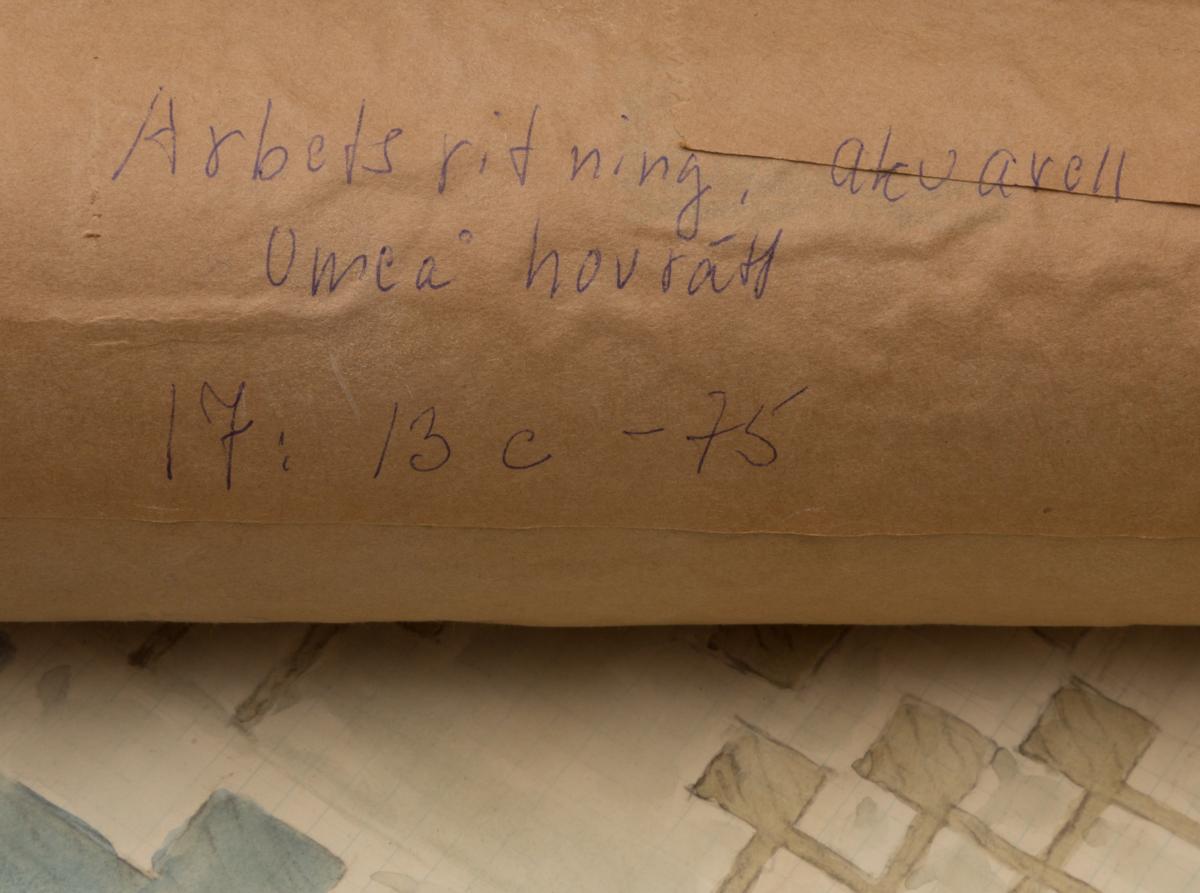 Arbetsritning, akvarell
Umeå hovrätt
17: 13 c -75